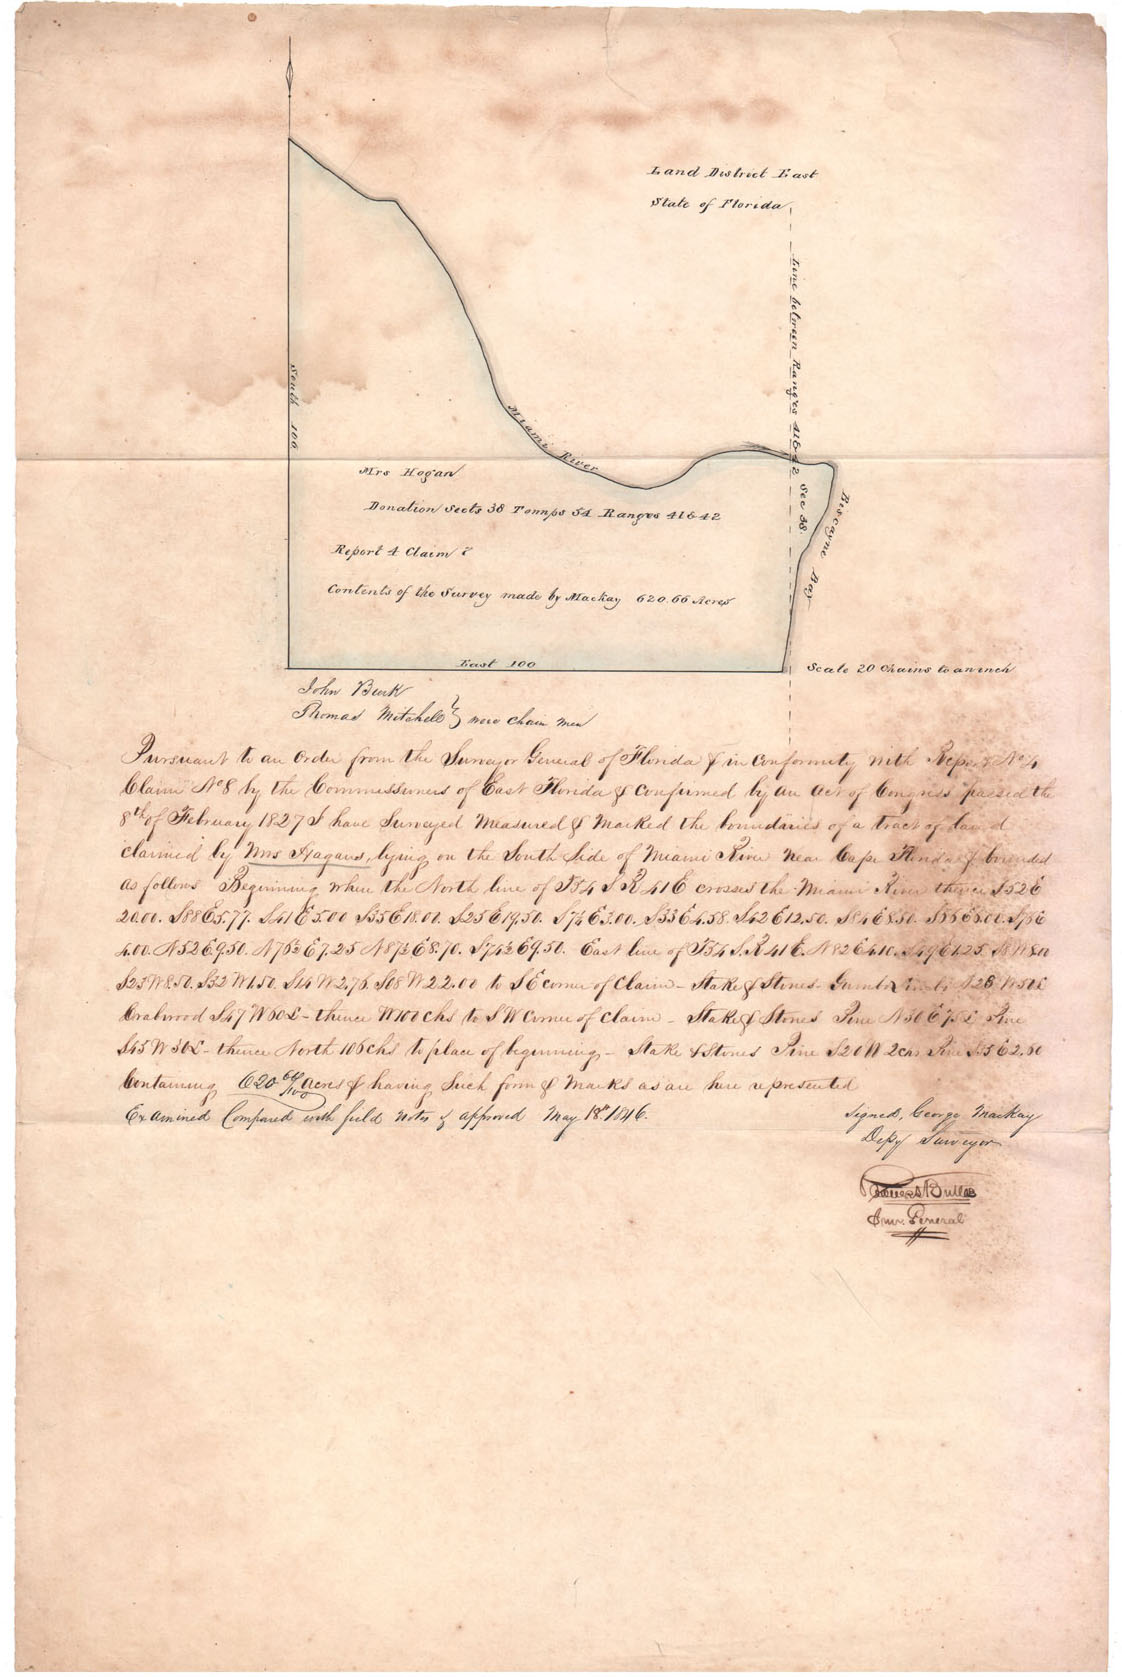 Land District East
State of Florida
Line between Ranges 41 & 42
South 106
Miami River
Sec 38
Biscayne Bay
Mrs Hogan
Donation Sects 38 Townps 54 Ranges 41 & 42
Report 4 Claim
Contents of the Survey made by Mackay 620.66 Acres
East 100
Scale 20 Chains to an inch
John Burk
Thomas Mitchell } were chain men
Pursuant to an Order from the Surveyor General of Florida & in conformity with Report No 4
Claim No 8 by the Commissioners of East Florida & confirmed by an act of Congress passed the
8th of February 1827 I have Surveyed Measured & Marked the boundaries of a tract of land
claimed by Mrs Hagans, lying on the South Side of Miami River near Cape Florida & bounded
as follows Beginning where the North line of T54 S R 41 E crosses the Miami River thence S52E
20.00. S88E5.77. S41E5.00 S35E18.00. S25E19.50. S7½E3.00. S33E4.58. S42E12.50. S84E8.50.
4.00. N52E9.50. N76½E7.25 N87½E8.70. S74½E9.50. East line of T54 S. R 41 E. N82E4.10. S49E1.25 S8W8.00
S23W8.50. S32W1.50. S14W2.76. S08W22.00 to S E corner of Claim – Stake & Stones –
Crabwood S47W60L – thence W100 Chs to S W Corner of Claim – Stake & Stones Pine N30E75L Pine
S45W30L – thence North 106 chs to place of beginning – Stake & Stones Pine S20W 2chs Pine
Containing 620 66/100 Acres & having Such form & Marks as are here represented
Examined Compared with field Notes & approved May 18th 1846.
Signed, George Mackay
Depy Surveyor
Robert Butler
Surv. General